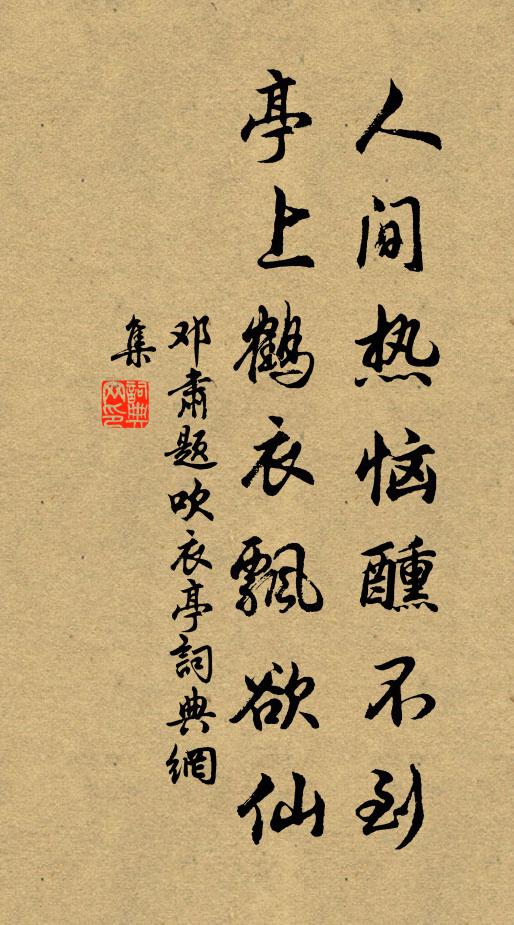 人间热恼醺不到
亭上鹤衣飘欲仙
邓肃题吹衣亭詞典網
集
詞典
网印